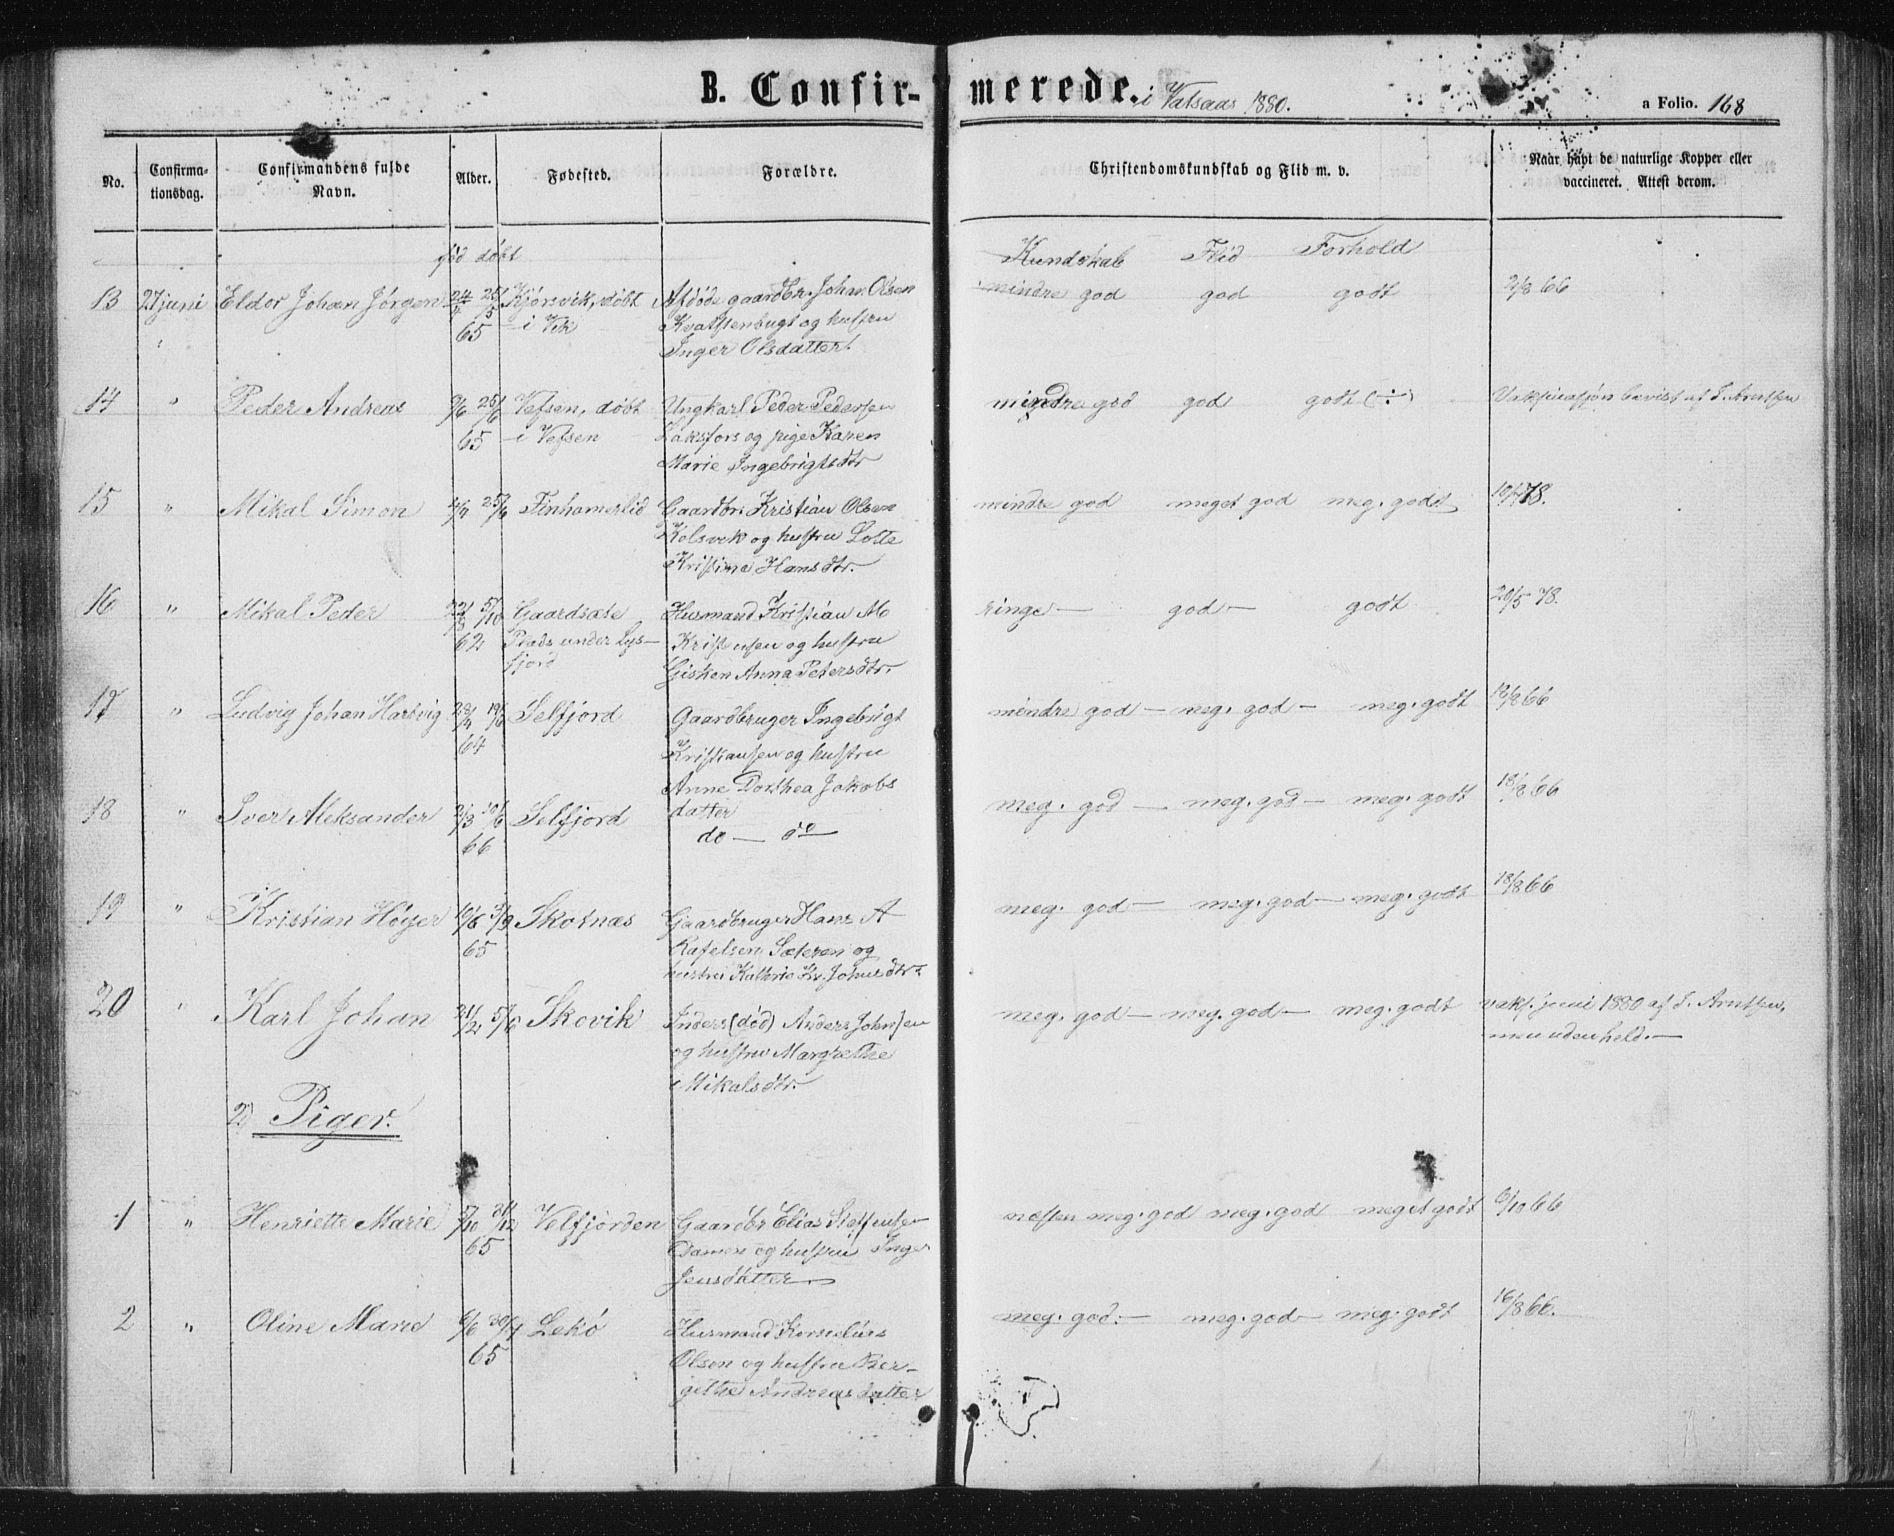 B. Confirmerede. i Vatsaas 1880.
a Folio. 168
No.
Confirmationsdag.
Confirmandens fulde Navn.
Alder.
Fødested.
Forældre.
Christendomskundskab og Flid m. v.
Naar havt de naturlige Kopper eller vaccineret. Attest derom.
fød døbt
Kundskab Flid Forhold
13 27 juni Eldor Johan Jørgen 24/4 25/5 Kjørsvik, døbt Afdøde gaardbr. Johan Olsen mindre god god godt 2/8 66
65 i Vik
og hustru
Inger Olsdatter
14 " Peder Andreas 9/6 25/6 Vefsen, døbt Ungkarl Peder Pedersen mindre god god godt (÷) Vaksinasjon bevist af Arntsen
65 i Vefsen Laksfors og pige Karen
Marie Ingebrigtsdtr
15 " Mikal Simon 4/4 25/6 Gaardbr. Kristian Olsen mindre god meget god meg. godt
Kolsvik og hustru Lotte
Kristine Hansdtr.
16 " Mikal Peder 5/10 Gaardsæte Husmand Kristian M ringe — god — godt 20/5 78.
62 Plads under Lys- Kristensen og hustru
fjord Gisken Anna Petersdtr.
17 " Ludvig Johan Hartvig 19/6 Selfjord Gaardbruger Ingebrigt mindre god — meg. god — meg. godt 18/8 66
64 Kristiansen og hustru
Anne Dorthea Jakobs
datter
18 " Iver Aleksander 2/3 10/6 Selfjord do — do meg. god — meg. god — meg. godt 18/8 66
66
19 " Kristian Høyer 16/6 3/9 Skotnæs Gaardbruger Hans A meg. god — meg. god — meg. godt 18/8 66
65 Rafelsen Sæteren og
hustru Johnsdtr
20 " Karl Johan 21/2 5/6 Skovik Inders (død) Anders Johnsen meg. god — meg. god — meg. godt vaks. juni 1880 af Arntsen,
og hustru Margrethe men uden held. —
Mikalsdtr.
2) Piger.
1 " Henriette Marie 5/10 31/12 Velfjorden Gaardbr Elias Steffensen næsten meg. god meg. god meget godt 6/10 66
65 og hustru Inger
Jensdatter
2 " Oline Marie 6/6 30/7 Lekø Husmand Kornelius meg. god. — meg. god — meg. godt 16/8 66.
65 Olsen og hustru Ber-
githe Andreasdatter